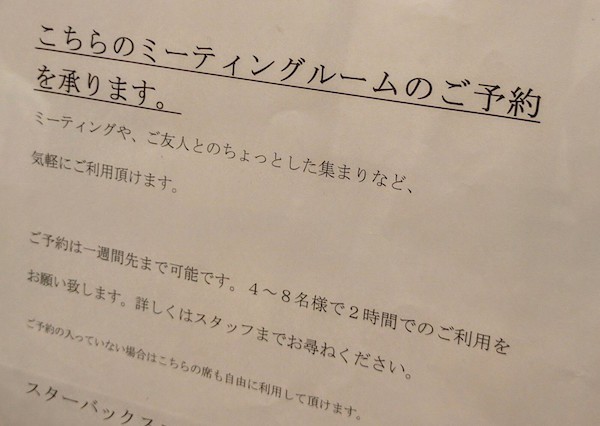 こちらのミーティングルームのご予約
を承ります。
ミーティングや、ご友人とのちょっとした集まりなど、
気軽にご利用頂けます。
ご予約は一週間先まで可能です。４～８名様で２時間でのご利用を
お願い致します。詳しくはスタッフまでお尋ねください。
ご予約の入っていない場合はこちらの席も自由に利用して頂けます。
スターバックス